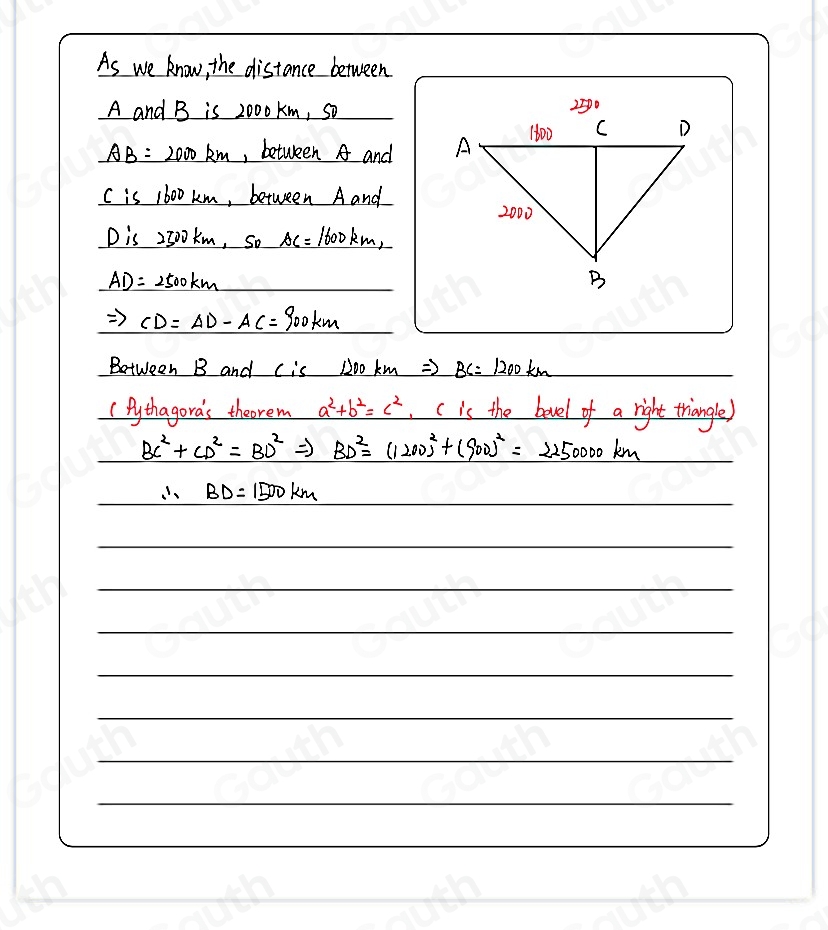 As we know, the distance between
A and B is 2000 km, so
AB = 2000 km, between A and
C is 1600 km, between A and
D is 2500 km, so AC = 1600 km,
AD = 2500 km
=> CD = AD - AC = 900 km
2500
1600
C
D
A
2000
B
Between B and C is 1200 km => BC = 1200 km
(Pythagora's theorem a²+b²=c², c is the bevel of a right triangle)
BC² + CD² = BD² => BD² = (1200)² + (900)² = 2250000 km
∴ BD = 1500 km
Gauth